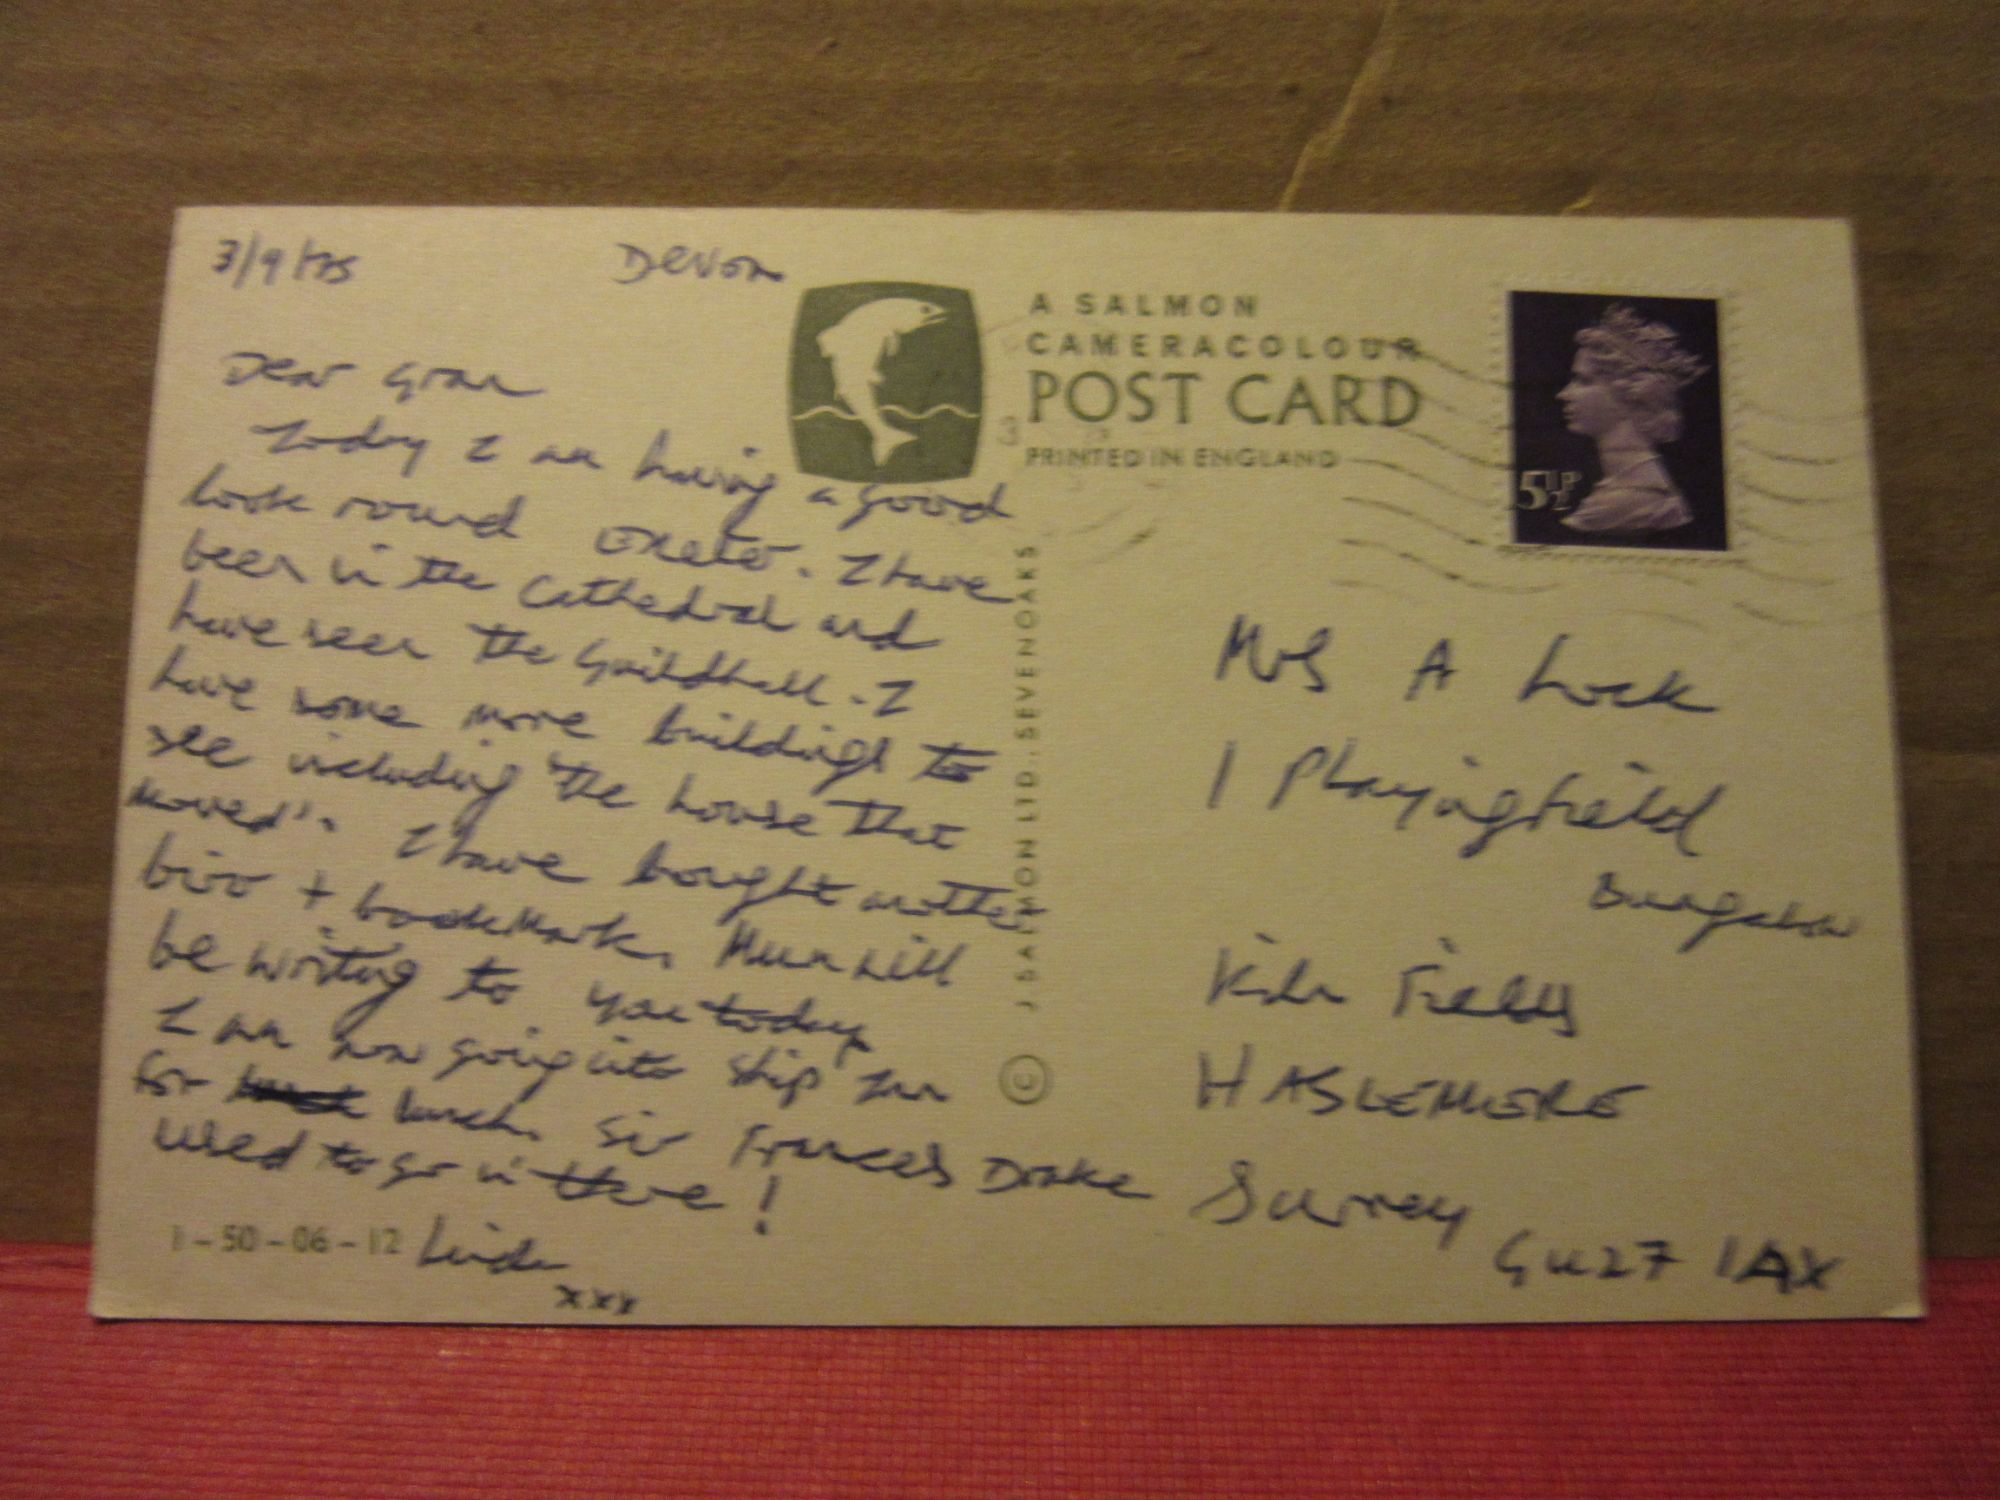 3/9/75 Devon
Dear Gran
Today I am having a good
look round Exeter. I have
been in the Cathedral and
have seen the Guildhall. I
have some more buildings to
see including "the house that
moved". I have bought another
biro + bookmark. Mum will
be writing to you today
I am now going into Ship Inn
for lunch. Sir Frances Drake
used to go in there!
Linda
xxx
1-50-06-12
A SALMON
CAMERACOLOUR
POST CARD
PRINTED IN ENGLAND
© J SALMON LTD., SEVENOAKS
5½P
Mrs A Lock
1 Playingfield
Bungalow
Kiln Fields
HASLEMERE
Surrey
GU27 1AX